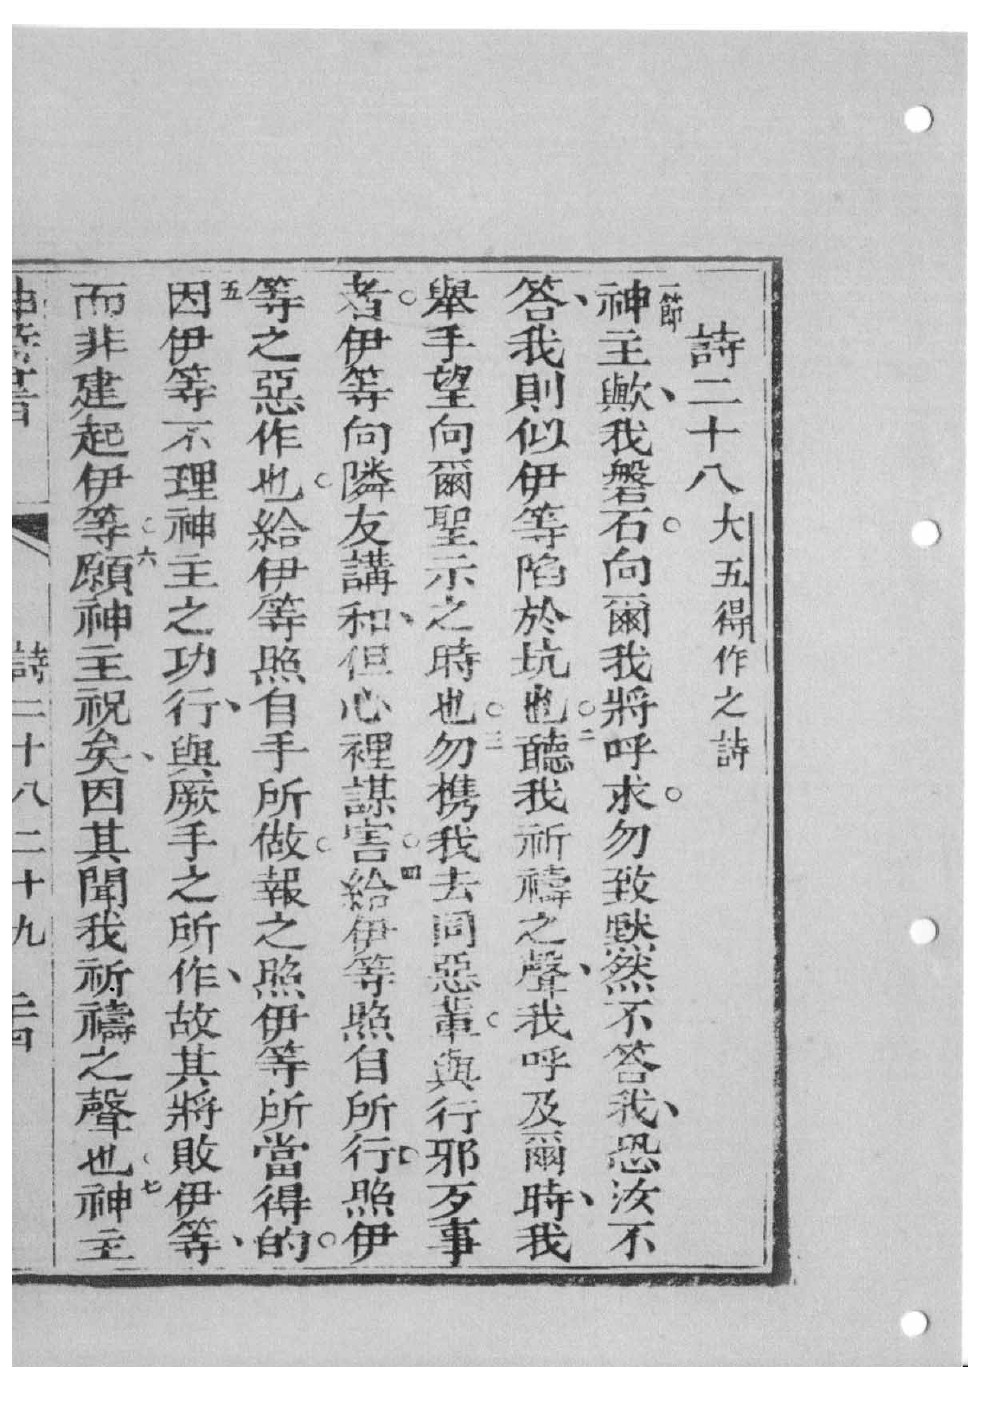 詩二十八大五得作之詩
一節神主歟、我磐石。向爾我將呼求。勿致默然不答我、恐汝不
答、我則似伊等陷於坑也。二聽我祈禱之聲、我呼及爾時、我
舉手望向爾聖示之時也。三勿携我去同惡輩。與行邪歹事
者。伊等向隣友講和、但心裡謀害。四給伊等照自所行。照伊
等之惡作也。給伊等照自手所做。報之照伊等所當得的。
五因伊等不理神主之功行、與厥手之所作、故其將敗伊等、
而非建起伊等。六願神主祝矣、因其聞我祈禱之聲也。七神主
詩二十八二十九 二四